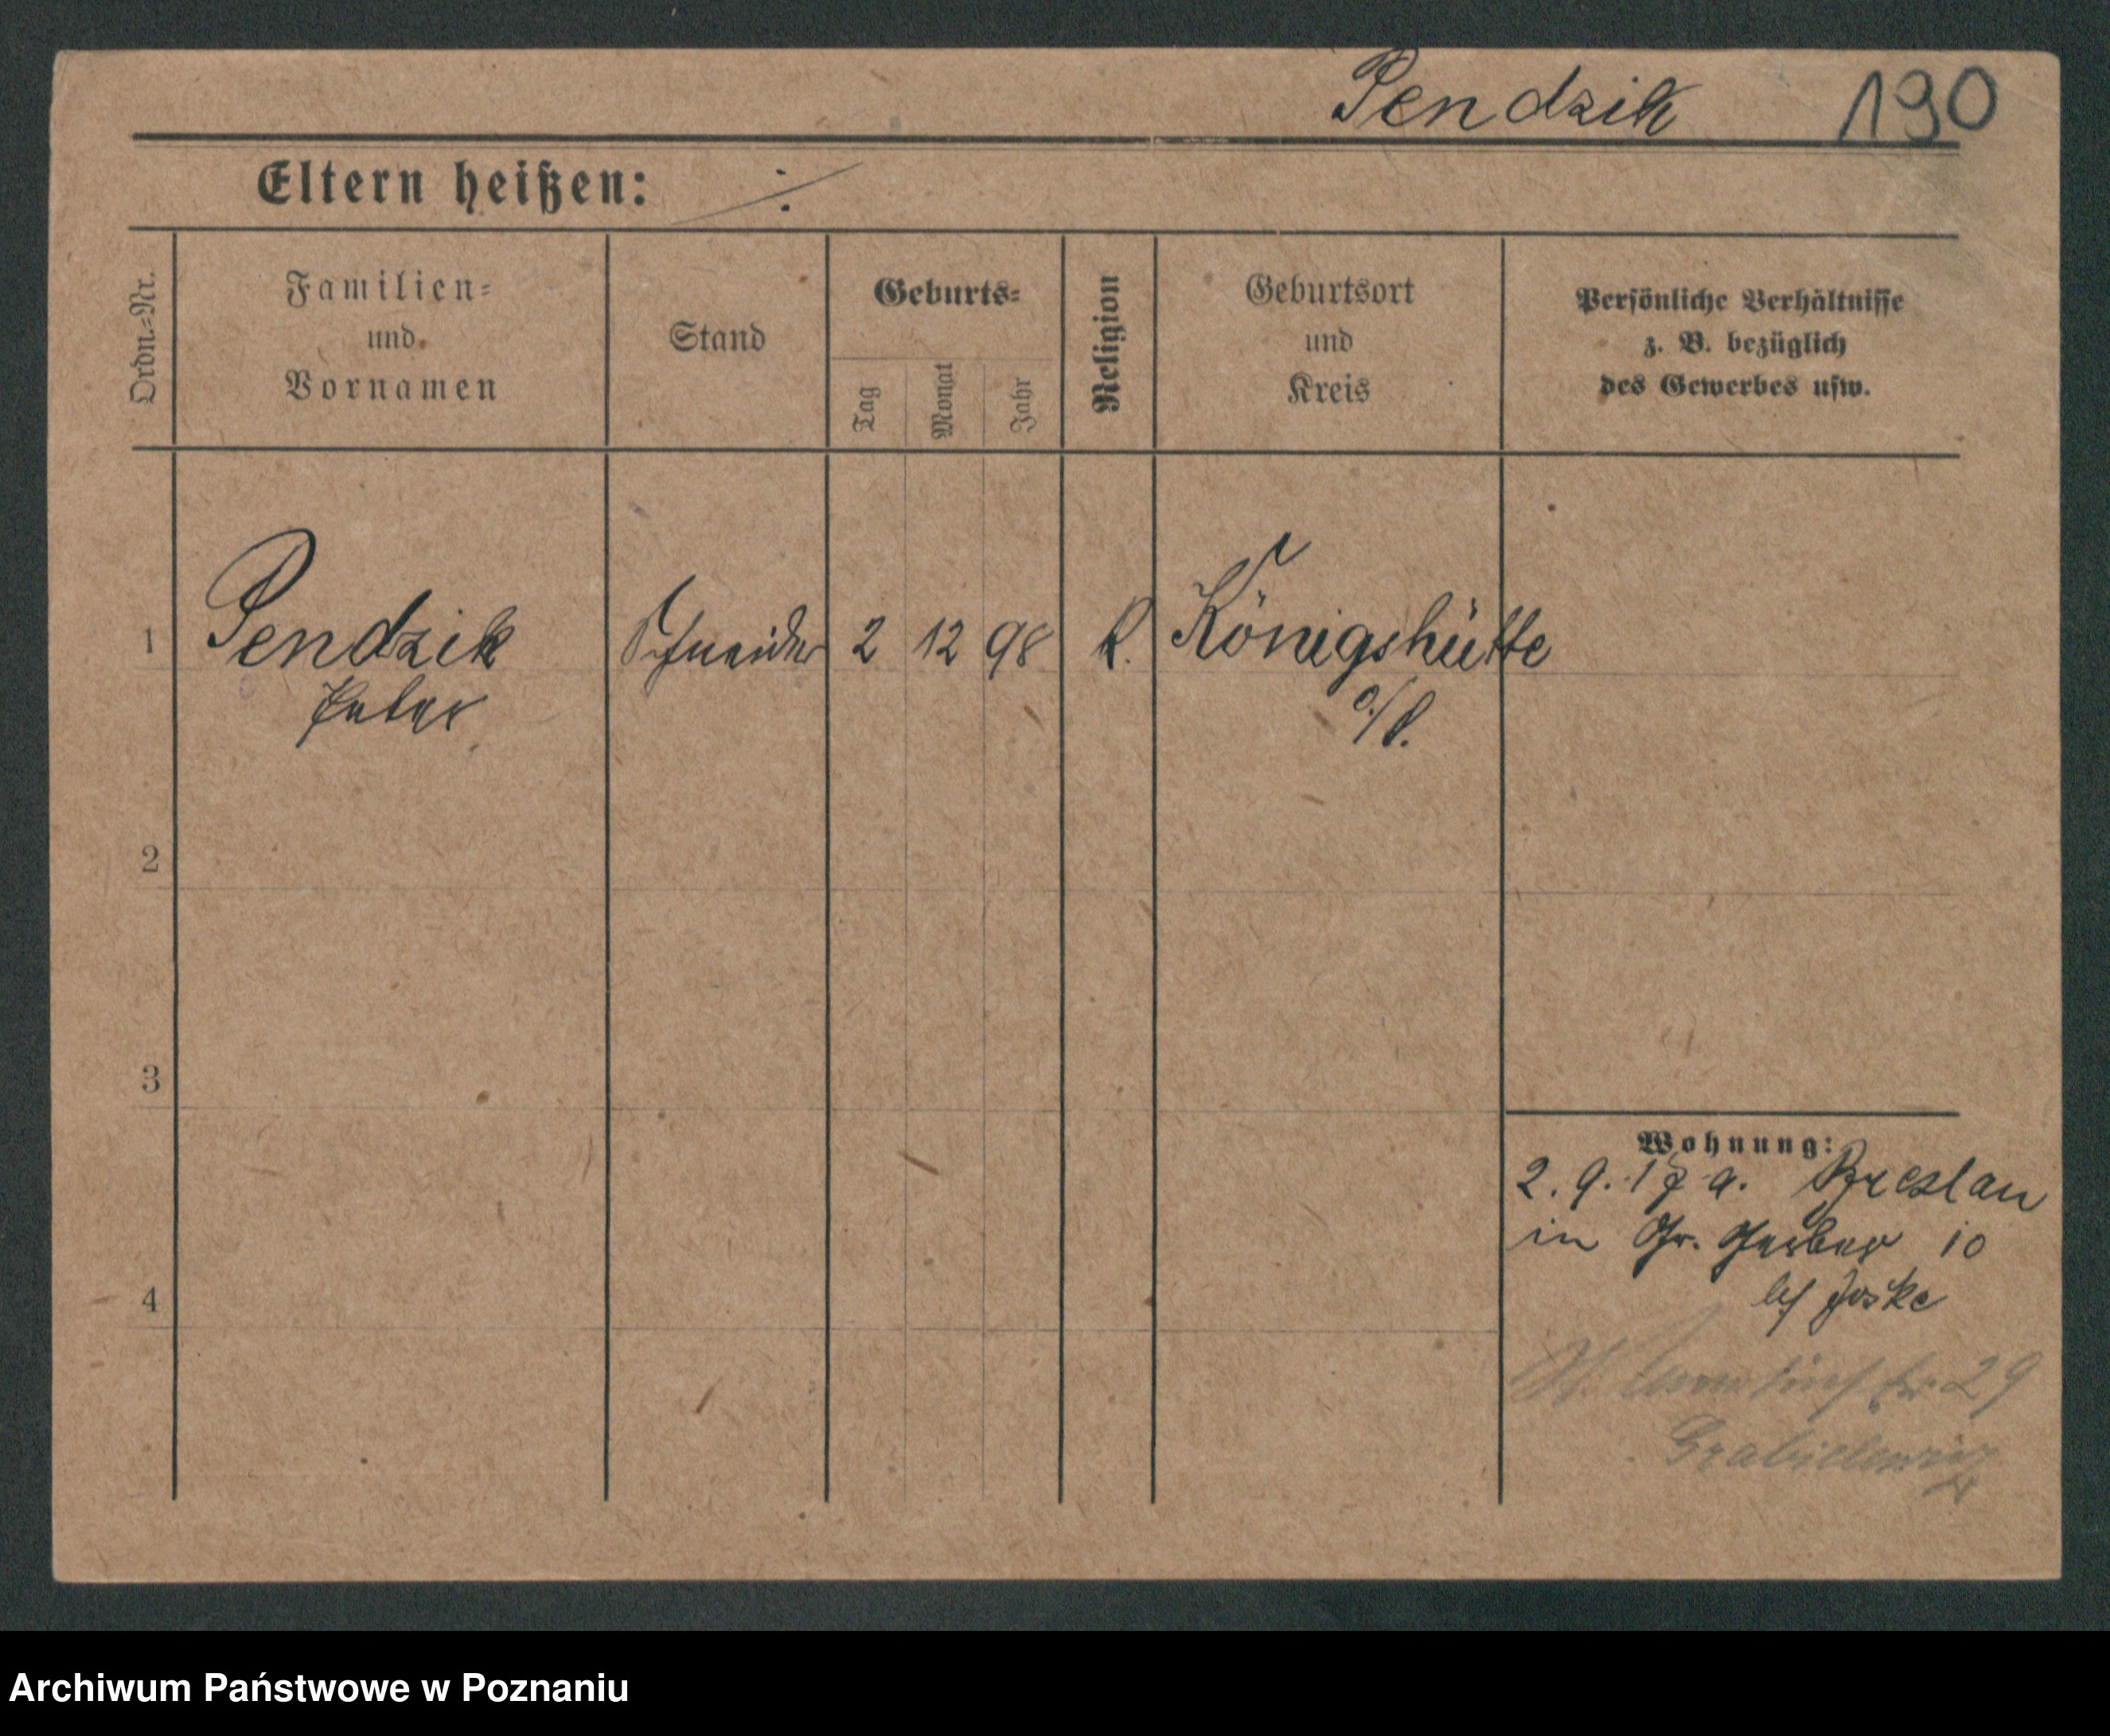 Pendzik 190
Eltern heißen: ./.
Ordn.-Nr.
Familien-
und
Vornamen
Stand
Geburts-
Tag
Monat
Jahr
Religion
Geburtsort
und
Kreis
Persönliche Verhältnisse
z. B. bezüglich
des Gewerbes usw.
1 Pendzik Schneider 2 12 98 k. Königshütte
Peter o/S.
2
3
4
Wohnung:
2. 9. 17 a. Breslau
in Gr. Gerber 10
bei Joske
29
Archiwum Państwowe w Poznaniu